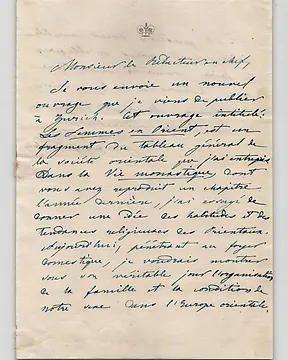 Monsieur le Rédacteur en chef,
Je vous envoie un nouvel
ouvrage que je viens de publier
à Zurich. Cet ouvrage intitulé:
Les Femmes en Orient, est un
fragment du tableau général de
la société orientale que j'ai entrepris
Dans la Vie monastique dont
vous avez reproduit un chapitre
l'année dernière, j'ai essayé de
donner une idée des habitudes et des
tendances religieuses des Orientaux.
Aujourd'hui, pénétrant au foyer
domestique, je voudrais montrer
sous son véritable jour l'organisation
de la famille et la condition de
notre sexe dans l'Europe orientale.